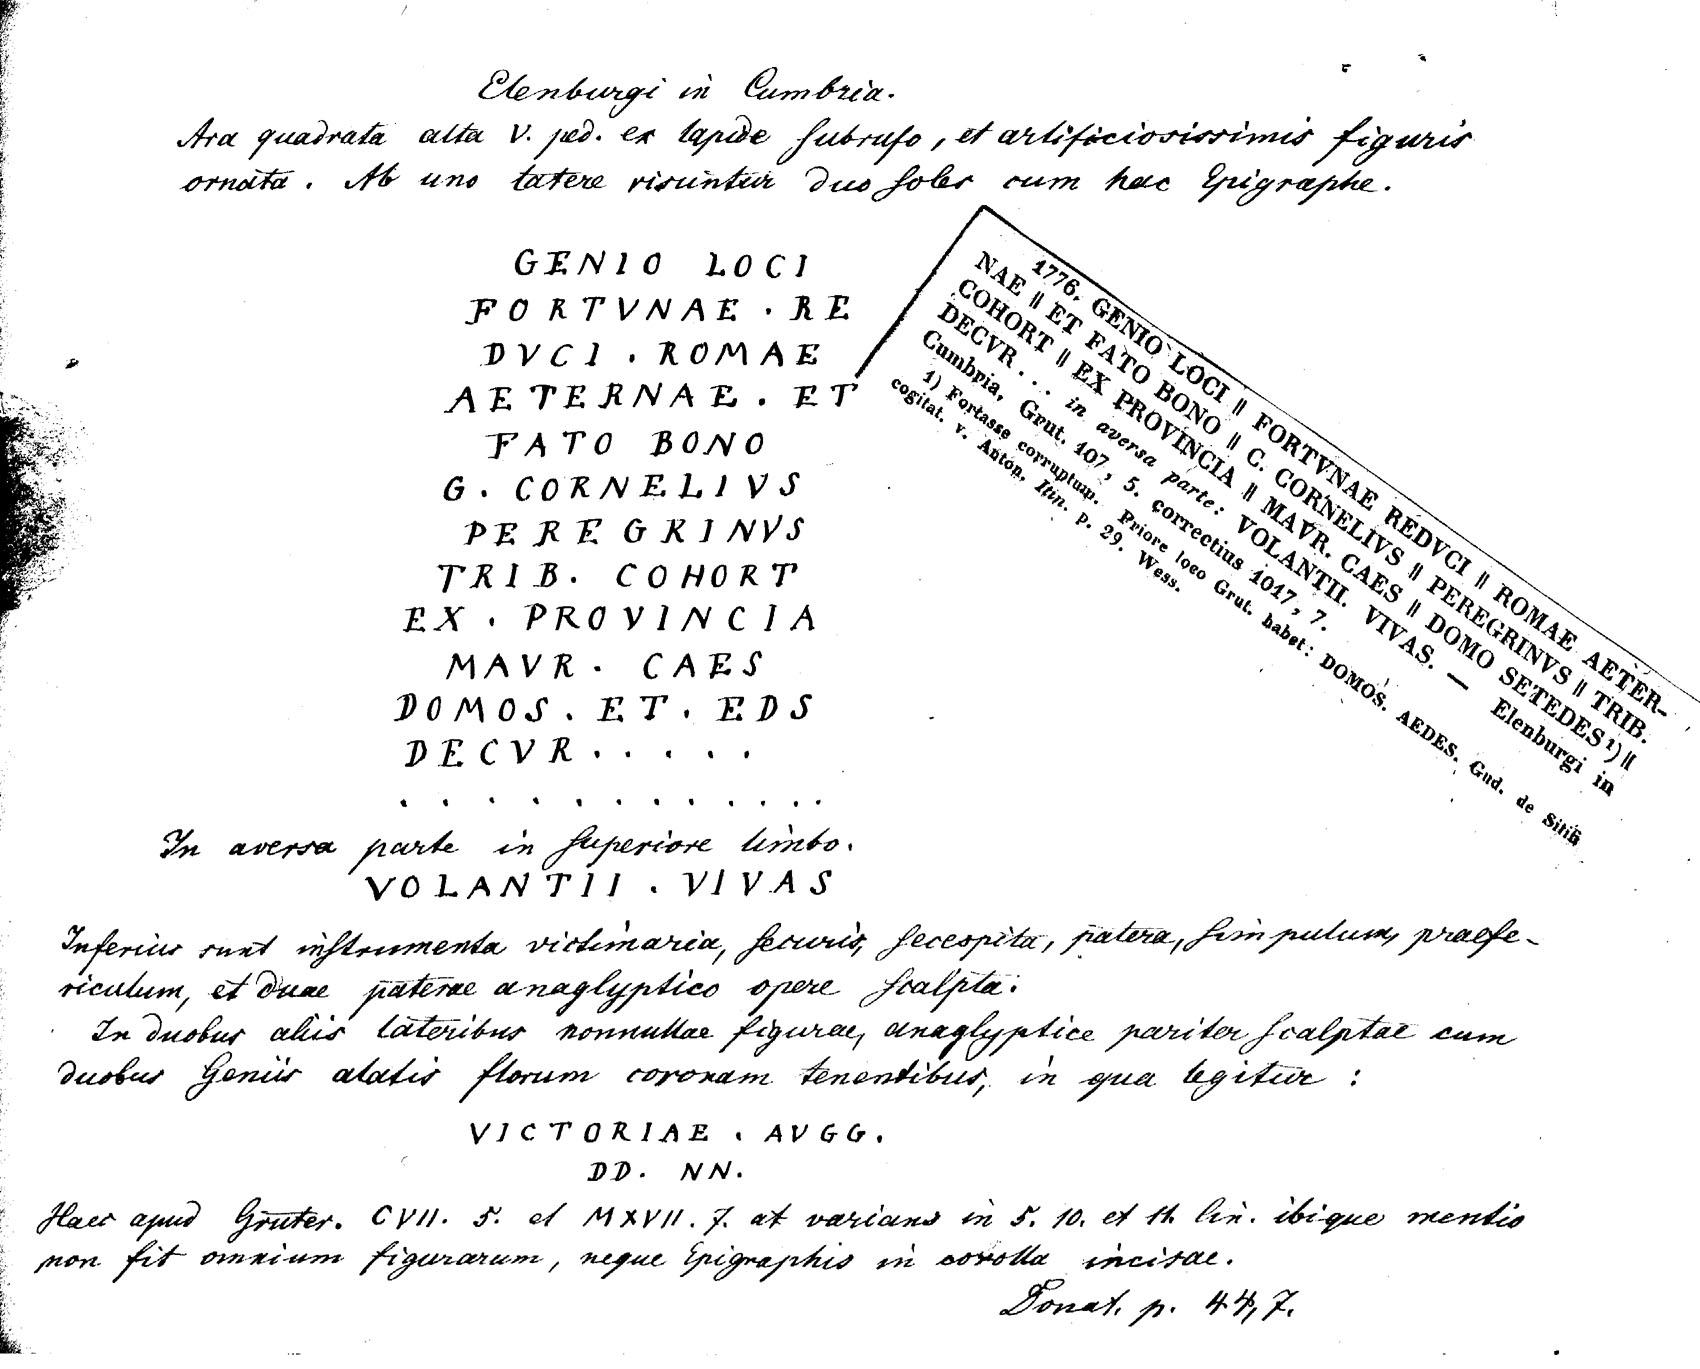 Elenburgi in Cumbria.
Ara quadrata alta V. ped. ex lapide subrufo, et artificiosissimis figuris
ornata. Ab uno latere visuntur duo soles cum hac Epigraphe.
GENIO LOCI
FORTVNAE . RE
DVCI . ROMAE
AETERNAE . ET
FATO BONO
G . CORNELIVS
PEREGRINVS
TRIB. COHORT
EX . PROVINCIA
MAVR. CAES
DOMOS . ET . EDS
DECVR . . . . .
. . . . . . . . . . . .
In aversa parte in superiore limbo.
VOLANTII . VIVAS
Inferius sunt instrumenta victimaria, securis, secespita, patera, simpulum, praefe-
riculum, et duae paterae anaglyptico opere scalpta.
In duobus aliis lateribus nonnullae figurae, anaglyptice pariter scalptae cum
duobus Geniis alatis florum coronam tenentibus, in qua legitur :
VICTORIAE . AVGG.
DD. NN.
Haec apud Gruter. CVII. 5. et MXVII. 7. at varians in 5. 10. et 11. lin. ibique mentio
non fit omnium figurarum, neque Epigraphis in corolla incisae.
Donat. p. 44, 7.
1776. GENIO LOCI || FORTVNAE REDVCI || ROMAE AETER-
NAE || ET FATO BONO || C. CORNELIVS || PEREGRINVS || TRIB.
COHORT || EX PROVINCIA || MAVR. CAES || DOMO SETEDES 1) ||
DECVR . . . in aversa parte: VOLANTII. VIVAS. — Elenburgi in
Cumbria, Grut. 107, 5. correctius 1017, 7.
1) Fortasse corruptum. Priore loco Grut. habet: DOMOS. AEDES. Gud. de Sitifi
cogitat. v. Anton. Itin. p. 29. Wess.